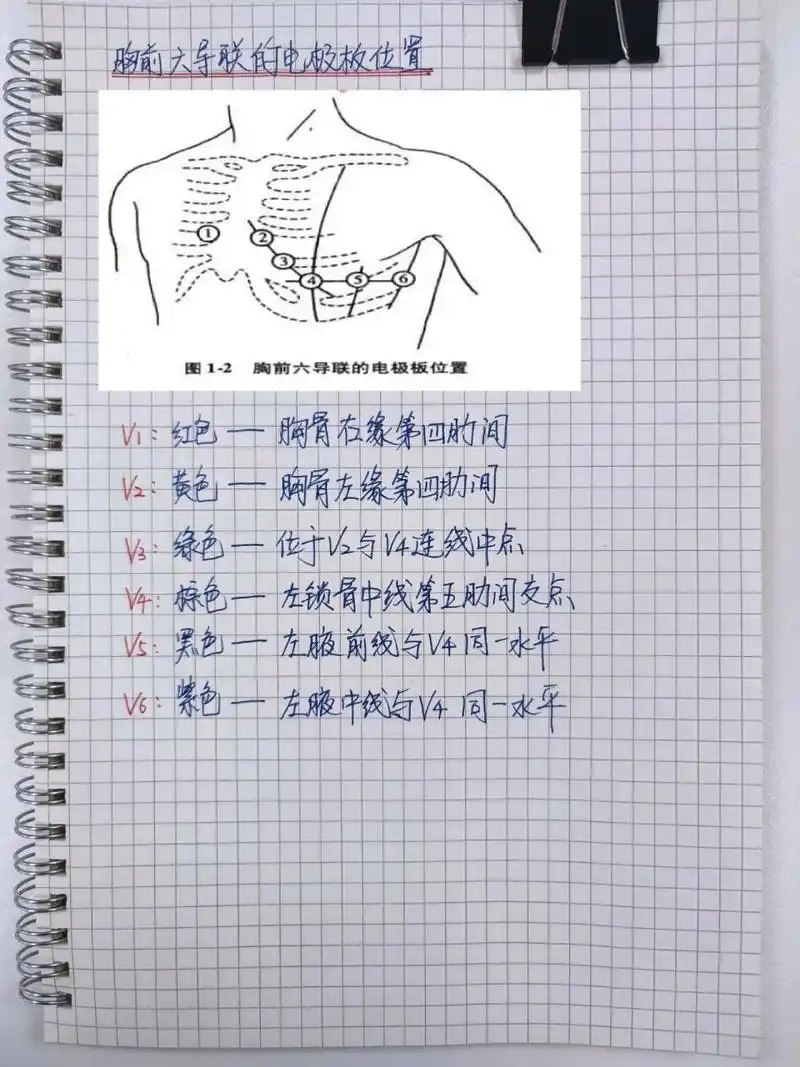 胸前六导联的电极板位置
① ② ③ ④ ⑤ ⑥
图1-2 胸前六导联的电极板位置
V1: 红色 — 胸骨右缘第四肋间
V2: 黄色 — 胸骨左缘第四肋间
V3: 绿色 — 位于V2与V4连线中点
V4: 棕色 — 左锁骨中线第五肋间交点
V5: 黑色 — 左腋前线与V4同一水平
V6: 紫色 — 左腋中线与V4同一水平